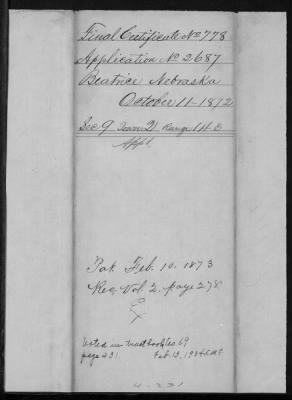 Final Certificate No 778
Application No 2687
Beatrice Nebraska
October 11-1872
Sec 9 Town 2 Range 14 E
Appl.
Pat. Feb. 10, 1873
Rec. Vol. 2. page 278
Noted in tract book les. 69
page 231. Feb. 13, 1934
4-221